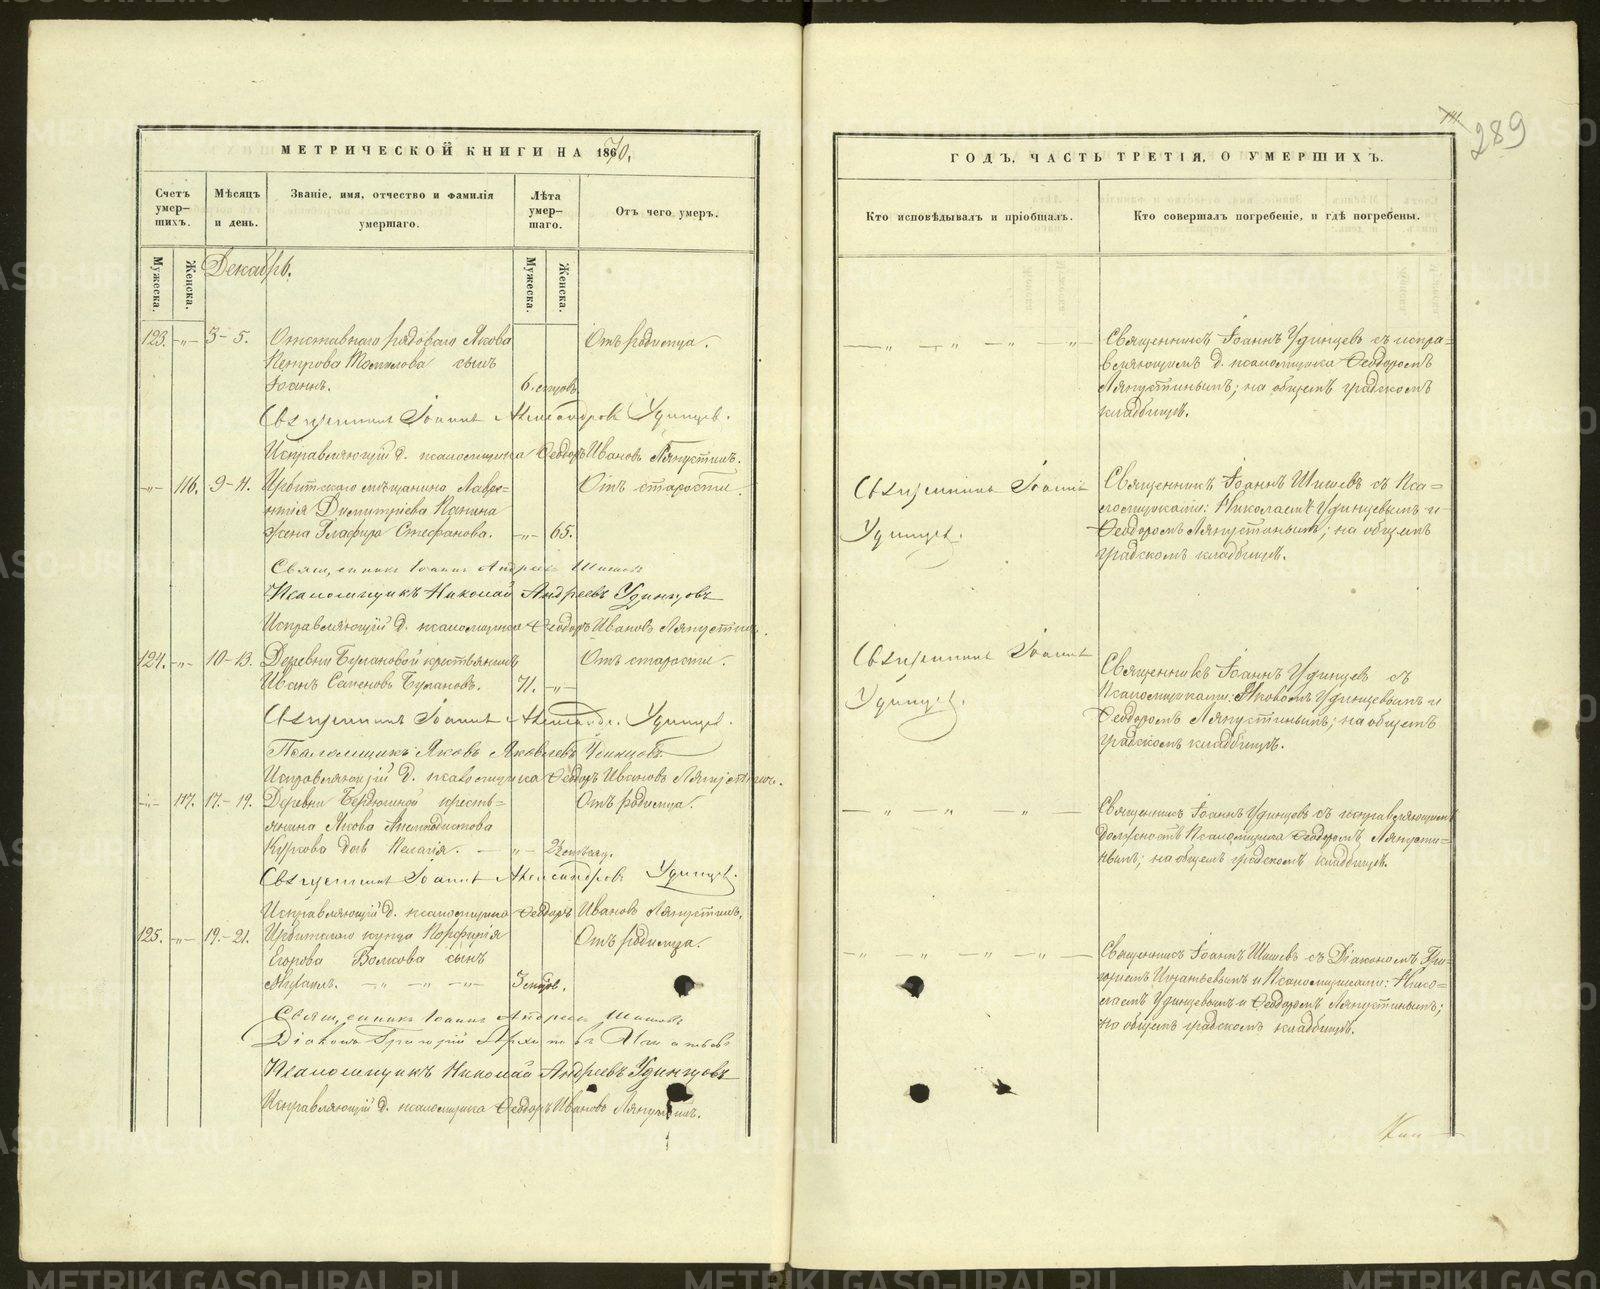 МЕТРИЧЕСКОЙ КНИГИ НА 1870,
Счетъ умер-шихъ.
Мѣсяцъ и день.
Званіе, имя, отчество и фамилія умершаго.
Лѣта умер-шаго.
Отъ чего умеръ.
Мужеска.
Женска.
Мужеска.
Женска.
Декабрь.
123. -„- 3-5. Отставнаго рядоваго Якова Отъ родимца.
Петрова Томилова сынъ
Іоаннъ. 6.
Священникъ Іоаннъ Александровъ Удинцев.
Исправляющій д. псаломщика Ѳеодоръ Ивановъ Ляпустинъ.
-„- 116. 9-11. Ирбитскаго мѣщанина Лавре- Отъ старости.
нтія Димитріева Панина
жена Глафира Стефанова. -„- 65.
Священникъ Іоаннъ Андреевъ Шишевъ
Псаломщикъ Николай Андреевъ Удинцовъ
Исправляющій д. псаломщика Ѳеодоръ Ивановъ Ляпустинъ.
124. -„- 10-13. Деревни Булановой крестьянинъ Отъ старости.
Иванъ Семеновъ Булановъ. 71. -„-
Священникъ Іоаннъ Александр. Удинцев.
Псаломщикъ Яковъ Яковлевъ Удинцовъ.
Исправляющій д. псаломщика Ѳеодоръ Ивановъ Ляпустинъ.
-„- 117. 17-19. Деревни Бердюгиной кресть- Отъ родимца.
янина Якова
Куркова дочь Пелагія. - „ - 2
Священникъ Іоаннъ Александровъ Удинцев.
Исправляющій д. псаломщика Ѳеодоръ Ивановъ Ляпустинъ.
125. -„- 19-21. Ирбитскаго купца Порфирія Отъ родимца.
Егорова Волкова сынъ
Михаилъ. -„- -„- -„- 3
Священникъ Іоаннъ Андреевъ Шишевъ
Діаконъ Григорій Игнатьевъ
Псаломщикъ Николай Андреевъ Удинцовъ
Исправляющій д. псаломщика Ѳеодоръ Ивановъ Ляпустинъ.
289
ГОДЪ, ЧАСТЬ ТРЕТІЯ, О УМЕРШИХЪ.
Кто исповѣдывалъ и пріобщалъ.
Кто совершалъ погребеніе, и гдѣ погребены.
— „ -„- — -„- Священникъ Іоаннъ Удинцевъ съ испра-
вляющимъ д. псаломщика Ѳеодоромъ
Ляпустинымъ; на общемъ градскомъ
кладбищѣ.
Священникъ Іоаннъ
Удинцев.
Священникъ Іоаннъ Шишевъ съ Пса-
ломщиками: Николаемъ Удинцевымъ и
Ѳеодоромъ Ляпустинымъ; на общемъ
градскомъ кладбищѣ.
Священникъ Іоаннъ
Удинцев.
Священникъ Іоаннъ Удинцевъ съ
Псаломщиками: Яковомъ Удинцевымъ и
Ѳеодоромъ Ляпустинымъ; на общемъ
градскомъ кладбищѣ.
— „ — „ — „ — Священникъ Іоаннъ Удинцевъ съ исправляющимъ
должность Псаломщика Ѳеодоромъ Ляпусти-
нымъ; на общемъ градскомъ кладбищѣ.
-„- -„- -„- -„- Священникъ Іоаннъ Шишевъ съ Діакономъ Гри-
горіемъ Игнатьевымъ и Псаломщиками: Нико-
лаемъ Удинцевымъ и Ѳеодоромъ Ляпустинымъ;
на общемъ градскомъ кладбищѣ.
METRIKI.GASO-URAL.RU